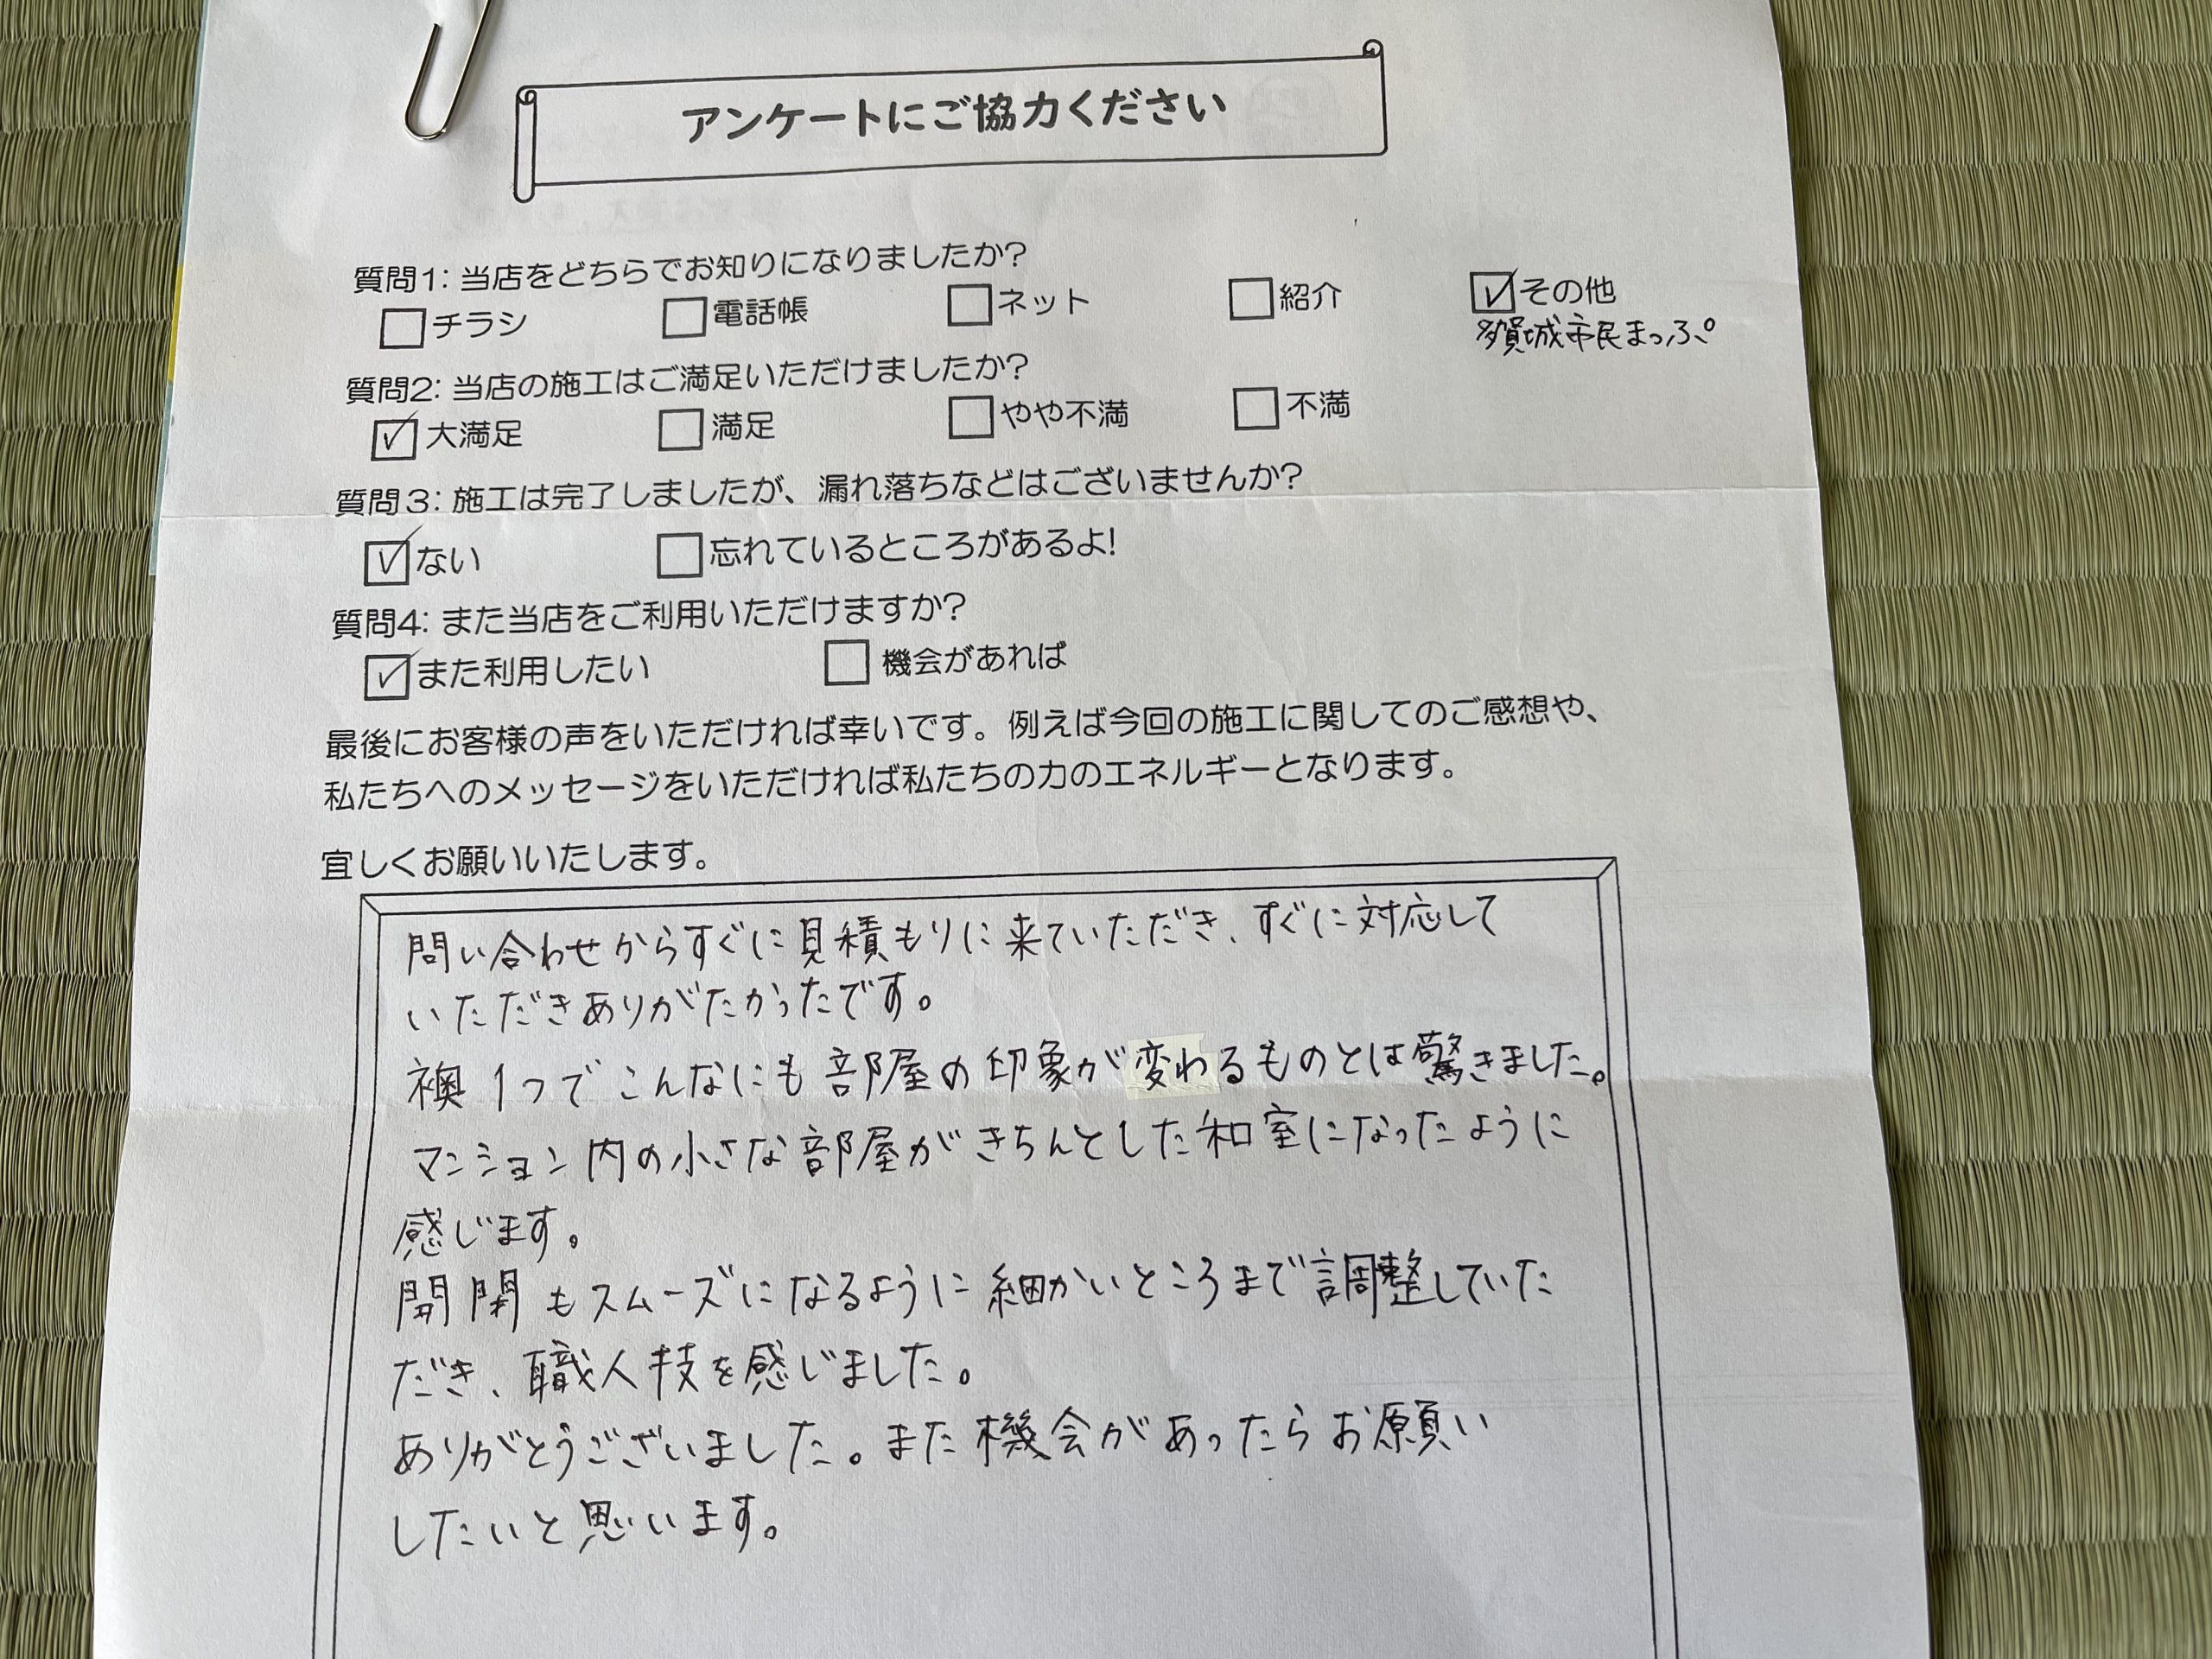 アンケートにご協力ください
質問1: 当店をどちらでお知りになりましたか?
チラシ 電話帳 ネット 紹介 その他
多賀城市民まっぷ
質問2: 当店の施工はご満足いただけましたか?
大満足 満足 やや不満 不満
質問3: 施工は完了しましたが、漏れ落ちなどはございませんか?
ない 忘れているところがあるよ!
質問4: また当店をご利用いただけますか?
また利用したい 機会があれば
最後にお客様の声をいただければ幸いです。例えば今回の施工に関してのご感想や、
私たちへのメッセージをいただければ私たちの力のエネルギーとなります。
宜しくお願いいたします。
問い合わせからすぐに見積もりに来ていただき、すぐに対応して
いただきありがたかったです。
襖1つでこんなにも部屋の印象が変わるものとは驚きました。
マンション内の小さな部屋がきちんとした和室になったように
感じます。
開閉もスムーズになるように細かいところまで調整していた
だき、職人技を感じました。
ありがとうございました。また機会があったらお願い
したいと思います。